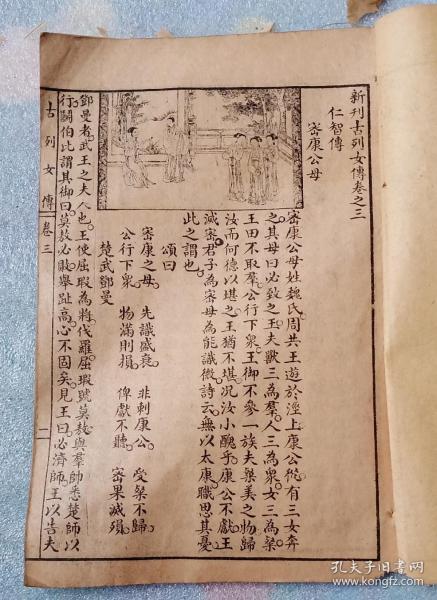 新刊古列女傳卷之三
仁智傳
密康公母
密康公母姓魏氏周共王遊於涇上康公從有三女奔
之其母曰必致之王夫獸三為羣人三為衆女三為粲
王田不取羣公行下衆王御不參一族夫粲美之物歸
汝而何德以堪之王猶不堪况汝小醜乎康公不獻王
滅密君子為密母為能識微詩云無以太康職思其憂
此之謂也
頌曰
密康之母 先識盛衰 非刺康公 受粲不歸
公行下衆 物滿則損 俾獻不聽 密果滅殞
楚武鄧曼
鄧曼者武王之夫人也王使屈瑕為將伐羅屈瑕號莫敖與羣帥悉楚師以
行鬭伯比謂其御曰莫敖必敗舉趾高心不固矣見王曰必濟師王以告夫
古列女傳 卷三 二
孔夫子旧书网
www.kongfz.com